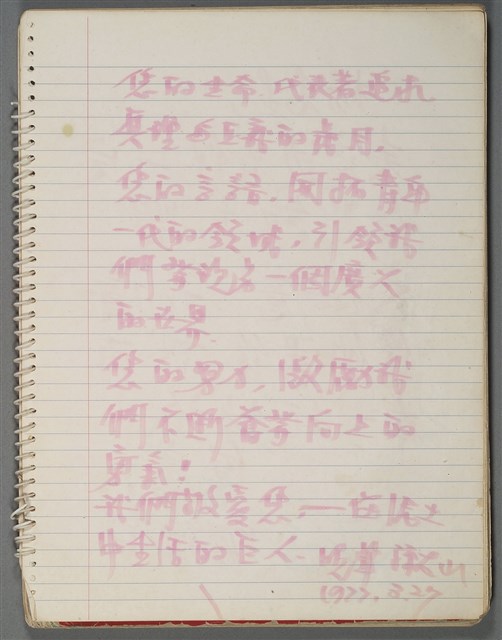 您的生命,代表著追求
真理与正義的歲月.
您的言語,開拓青年
一代的領域,引領我
們夢造另一個廣大
的世界.
您的努力,激勵我
們不斷奮鬥向上的
勇氣!
我們敬愛您,—在
生活的巨人.
1977.3.27